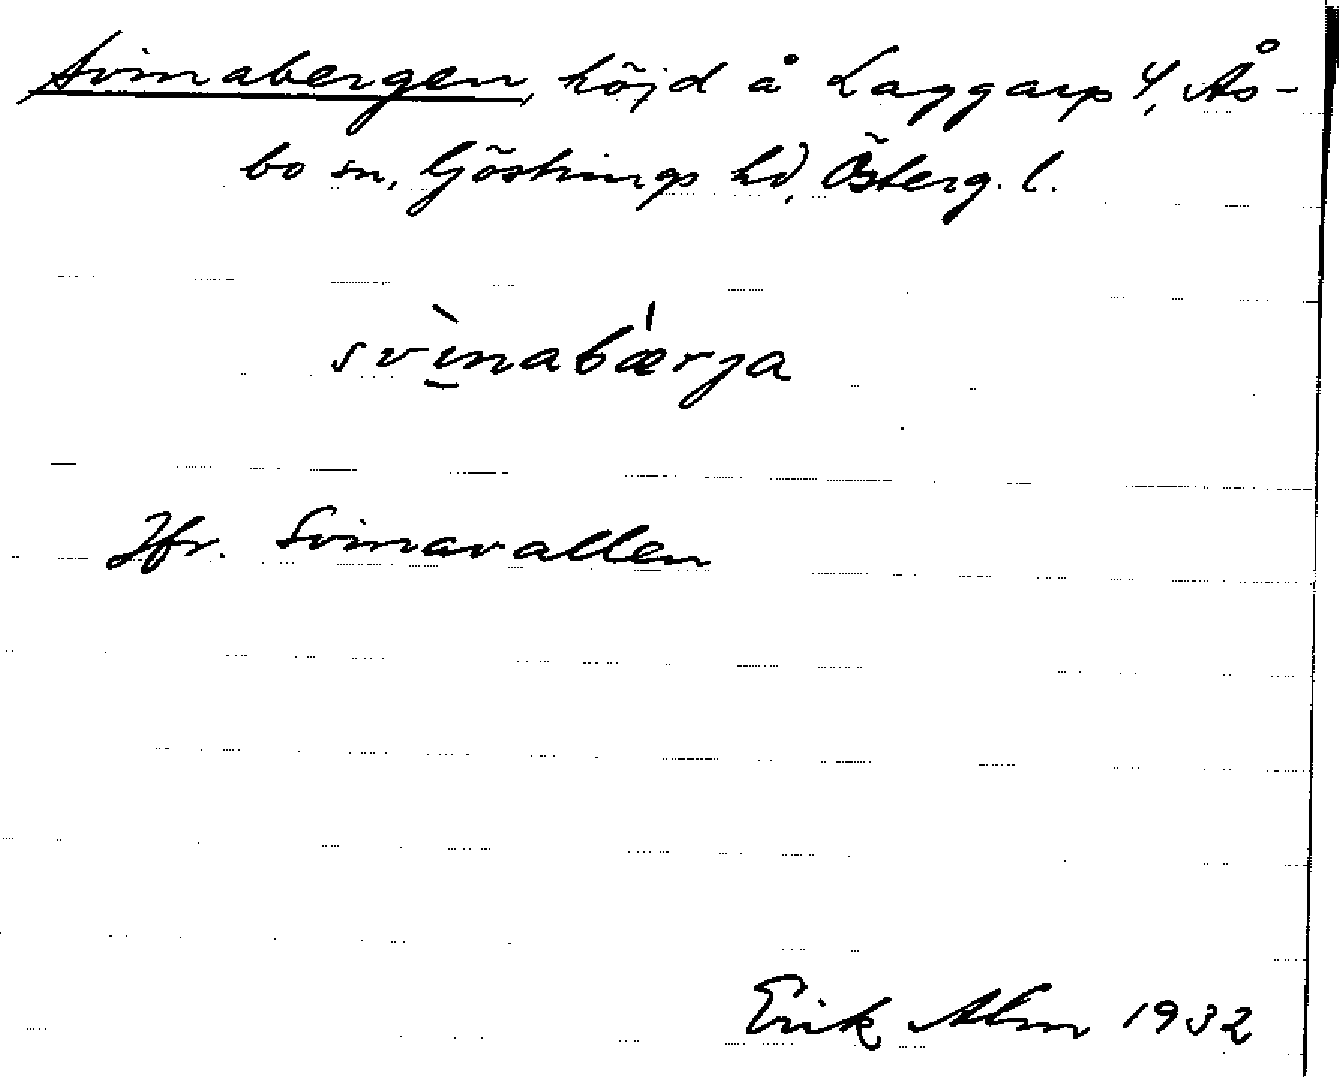 Svinabergen, höjd å Laggarp 4, Ås-
bo sn, Göstrings hd, Österg. l.
svìnabǽrja
Jfr. Svinavallen
Erik Alm 1932